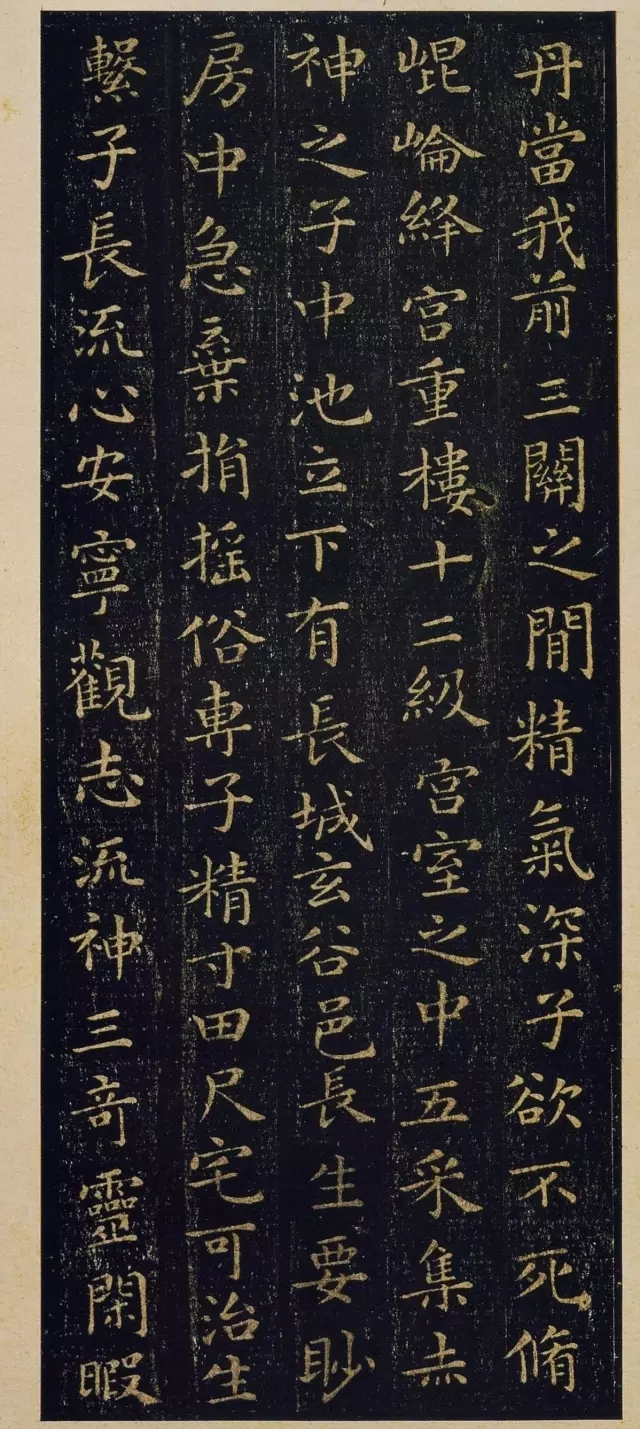 丹當我前三關之閒精氣深子欲不死脩
崐崘绛宫重樓十二級宫室之中五采集赤
神之子中池立下有長城玄谷邑長生要眇
房中急棄捐摇俗専子精寸田尺宅可治生
繋子長流心安寧觀志流神三竒靈閑暇